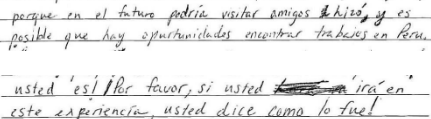 porque en el futuro podría visitar amigos hizó, y es
posible que hay opurtunidades encontrar trabajos en Peru.
usted esí ¡Por favor, si usted irá en
este experiencia, usted dice como lo fue!